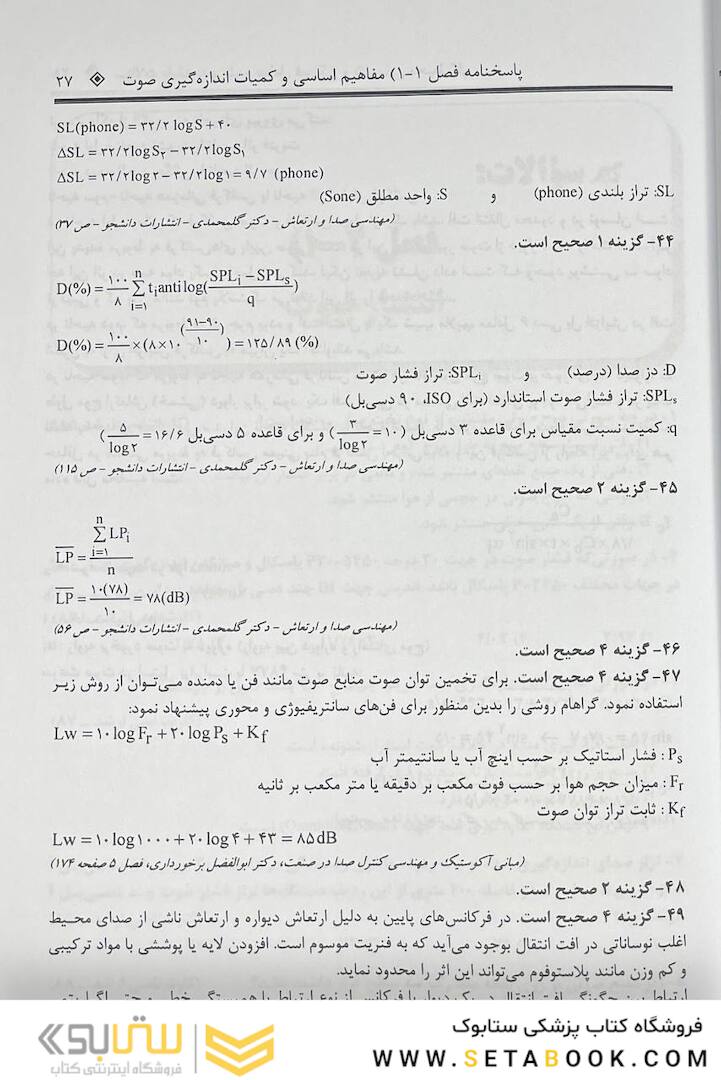 پاسخنامه فصل ۱-۱) مفاهیم اساسی و کمیات اندازه‌گیری صوت ۲۷
SL(phone) = ۳۲/۲ logS + ۴۰
ΔSL = ۳۲/۲logS۲ − ۳۲/۲logS۱
ΔSL = ۳۲/۲log۲ − ۳۲/۲log۱ = ۹/۷ (phone)
SL: تراز بلندی (phone) و S: واحد مطلق (Sone)
(مهندسی صدا و ارتعاش - دکتر گلمحمدی - انتشارات دانشجو - ص ۳۷)
۴۴- گزینه ۱ صحیح است.
D(%) = ۱۰۰/۸ Σ(i=۱ تا n) tᵢ anti log((SPLᵢ − SPLₛ)/q)
D(%) = ۱۰۰/۸ × (۸×۱۰^((۹۱−۹۰)/۱۰)) = ۱۲۵/۸۹ (%)
D: دز صدا (درصد) و SPLᵢ: تراز فشار صوت
SPLₛ: تراز فشار صوت استاندارد (برای ISO، ۹۰ دسی‌بل)
q: کمیت نسبت مقیاس برای قاعده ۳ دسی‌بل (۳/log۲ = ۱۰) و برای قاعده ۵ دسی‌بل (۵/log۲ = ۱۶/۶)
(مهندسی صدا و ارتعاش - دکتر گلمحمدی - انتشارات دانشجو - ص ۱۱۵)
۴۵- گزینه ۲ صحیح است.
L̅P̅ = Σ(i=۱ تا n) LPᵢ / n
L̅P̅ = ۱۰(۷۸)/۱۰ = ۷۸(dB)
(مهندسی صدا و ارتعاش - دکتر گلمحمدی - انتشارات دانشجو - ص ۵۶)
۴۶- گزینه ۴ صحیح است.
۴۷- گزینه ۴ صحیح است. برای تخمین توان صوت منابع صوت مانند فن یا دمنده می‌توان از روش زیر
استفاده نمود. گراهام روشی را بدین منظور برای فن‌های سانتریفیوژی و محوری پیشنهاد نمود:
Lw = ۱۰ log Fr + ۲۰ log Ps + Kf
Ps : فشار استاتیک بر حسب اینچ آب یا سانتیمتر آب
Fr : میزان حجم هوا بر حسب فوت مکعب بر دقیقه یا متر مکعب بر ثانیه
Kf : ثابت تراز توان صوت
Lw = ۱۰ log ۱۰۰۰ + ۲۰ log ۴ + ۴۳ = ۸۵ dB
(مبانی آکوستیک و مهندسی کنترل صدا در صنعت، دکتر ابوالفضل برخورداری، فصل ۵ صفحه ۱۷۴)
۴۸- گزینه ۲ صحیح است.
۴۹- گزینه ۴ صحیح است. در فرکانس‌های پایین به دلیل ارتعاش دیواره و ارتعاش ناشی از صدای محیط
اغلب نوساناتی در افت انتقال بوجود می‌آید که به فنریت موسوم است. افزودن لایه یا پوششی با مواد ترکیبی
و کم وزن مانند پلاستوفوم می‌تواند این اثر را محدود نماید.
فروشگاه کتاب پزشکی ستابوک
WWW.SETABOOK.COM
ستابوک
فروشگاه اینترنتی کتاب